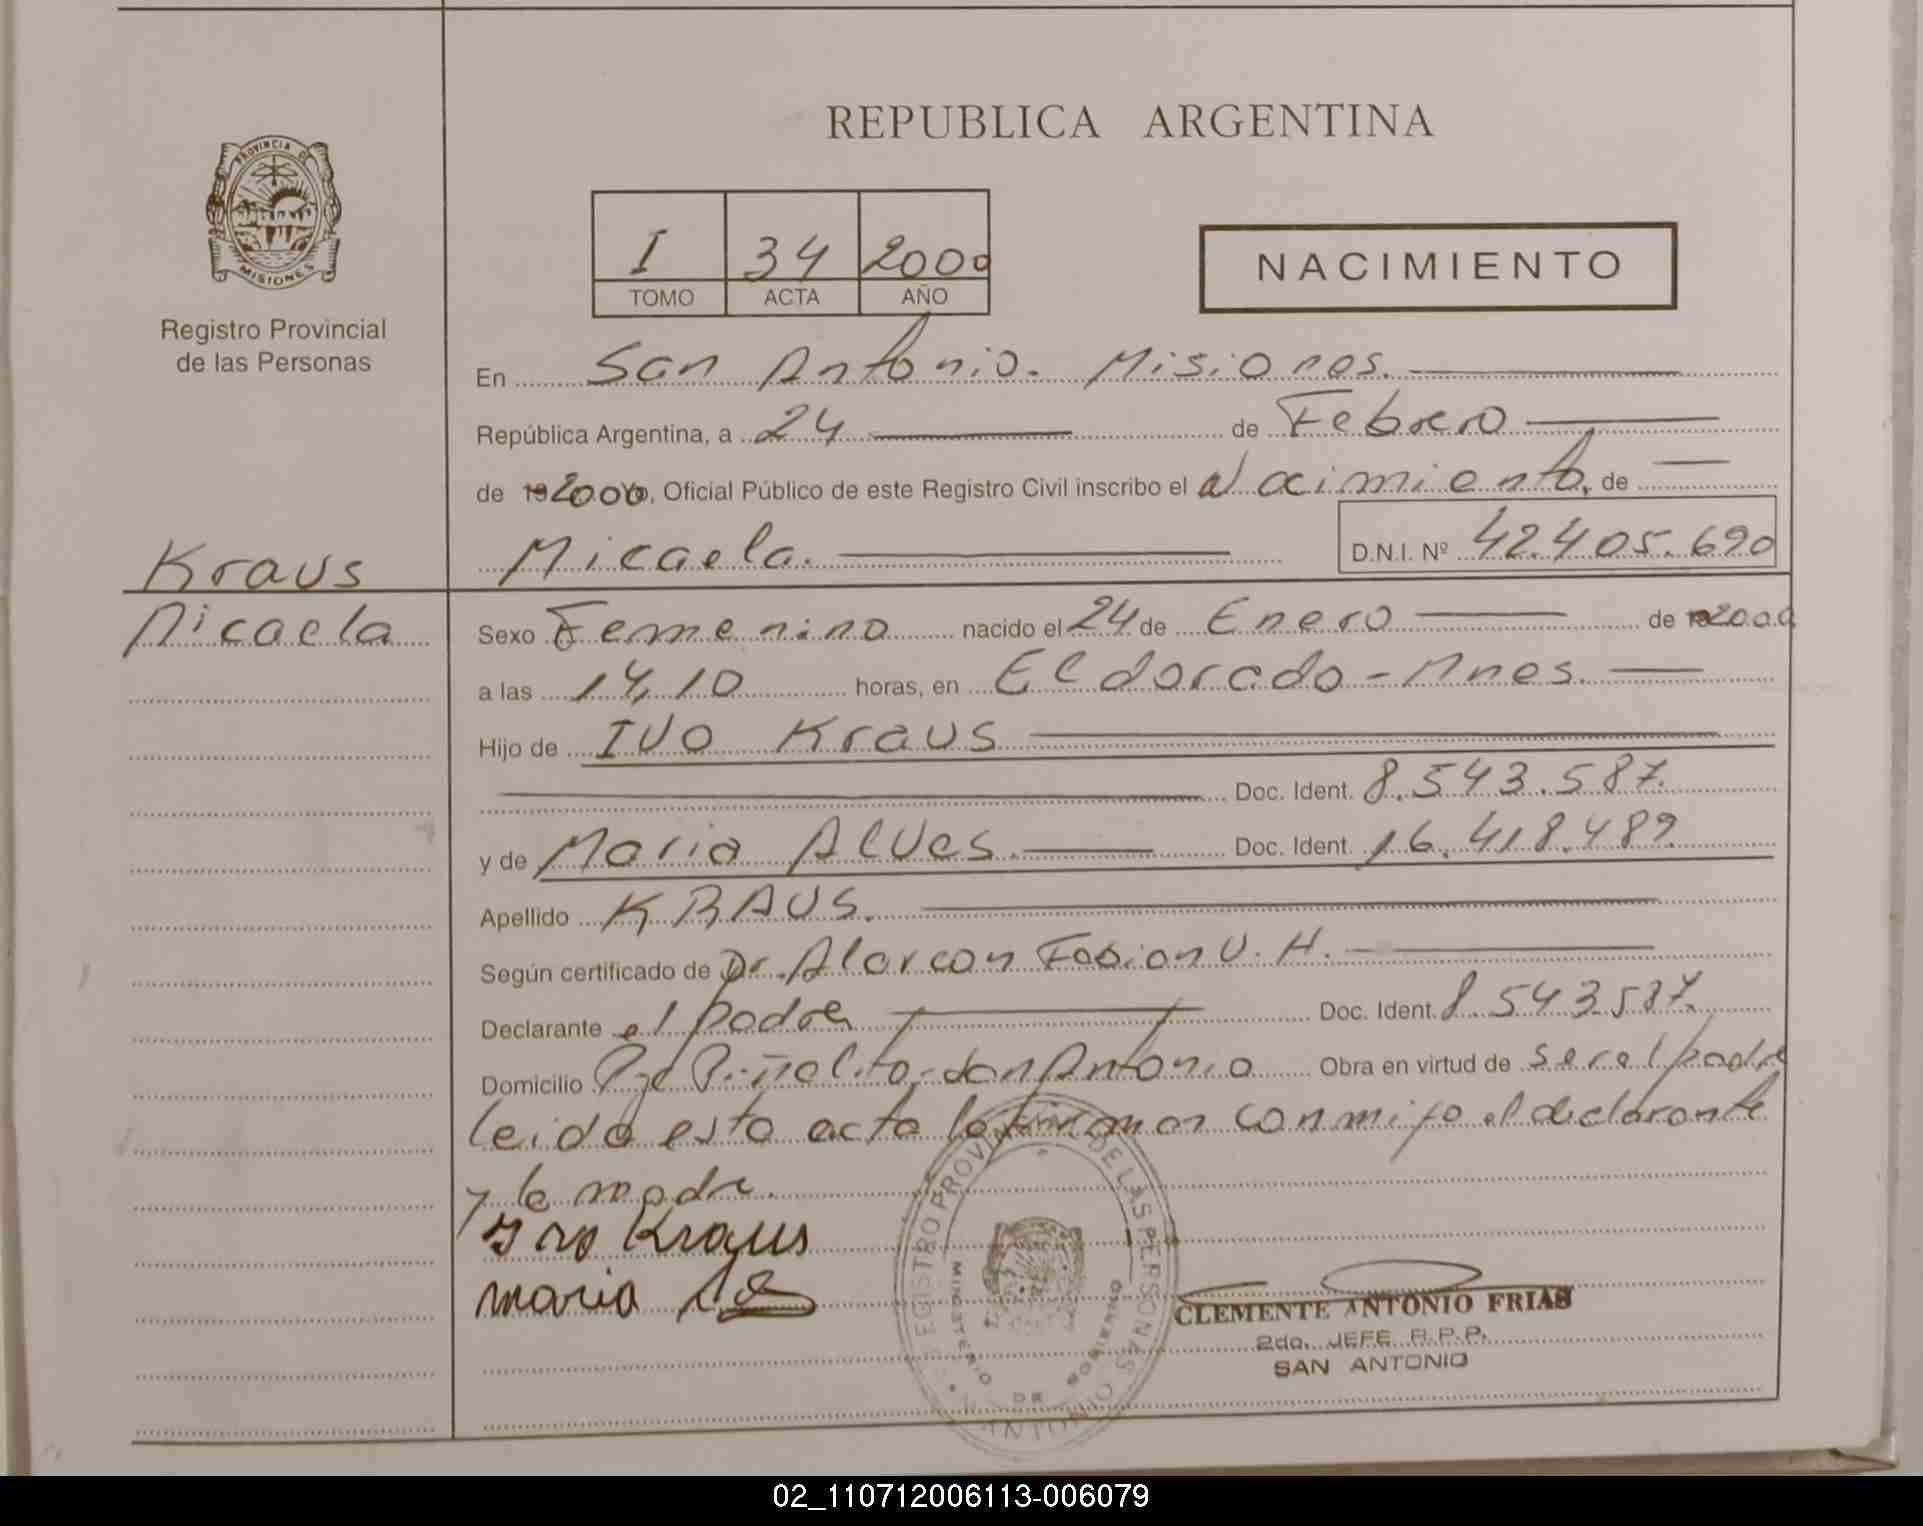 REPUBLICA ARGENTINA
PROVINCIA DE
MISIONES
Registro Provincial
de las Personas
I 34 2000
TOMO ACTA AÑO
NACIMIENTO
En San Antonio. Misiones.
República Argentina, a 24 de Febrero
de 192000, Oficial Público de este Registro Civil inscribo el Nacimiento, de
Micaela. D.N.I. Nº 42.405.690
Kraus
Micaela
Sexo Femenino nacido el 24 de Enero de 192000
a las 14,10 horas, en Eldorado - Mnes.
Hijo de IVO Kraus
Doc. Ident. 8.543.587.
y de Maria Alves. Doc. Ident. 16.418.489.
Apellido KRAUS.
Según certificado de Dr. Alarcon Fabian V. H.
Declarante el padre Doc. Ident. 8.543.587.
Domicilio Pje Piñalito, San Antonio Obra en virtud de ser el padre
leida esta acta la firman conmigo el declarante
y la madre.
Ivo Kraus
maria
REGISTRO PROVINCIAL DE LAS PERSONAS
MINISTERIO DE GOBIERNO
ANTONIO
CLEMENTE ANTONIO FRIAS
2do. JEFE R.P.P.
SAN ANTONIO
02_110712006113-006079